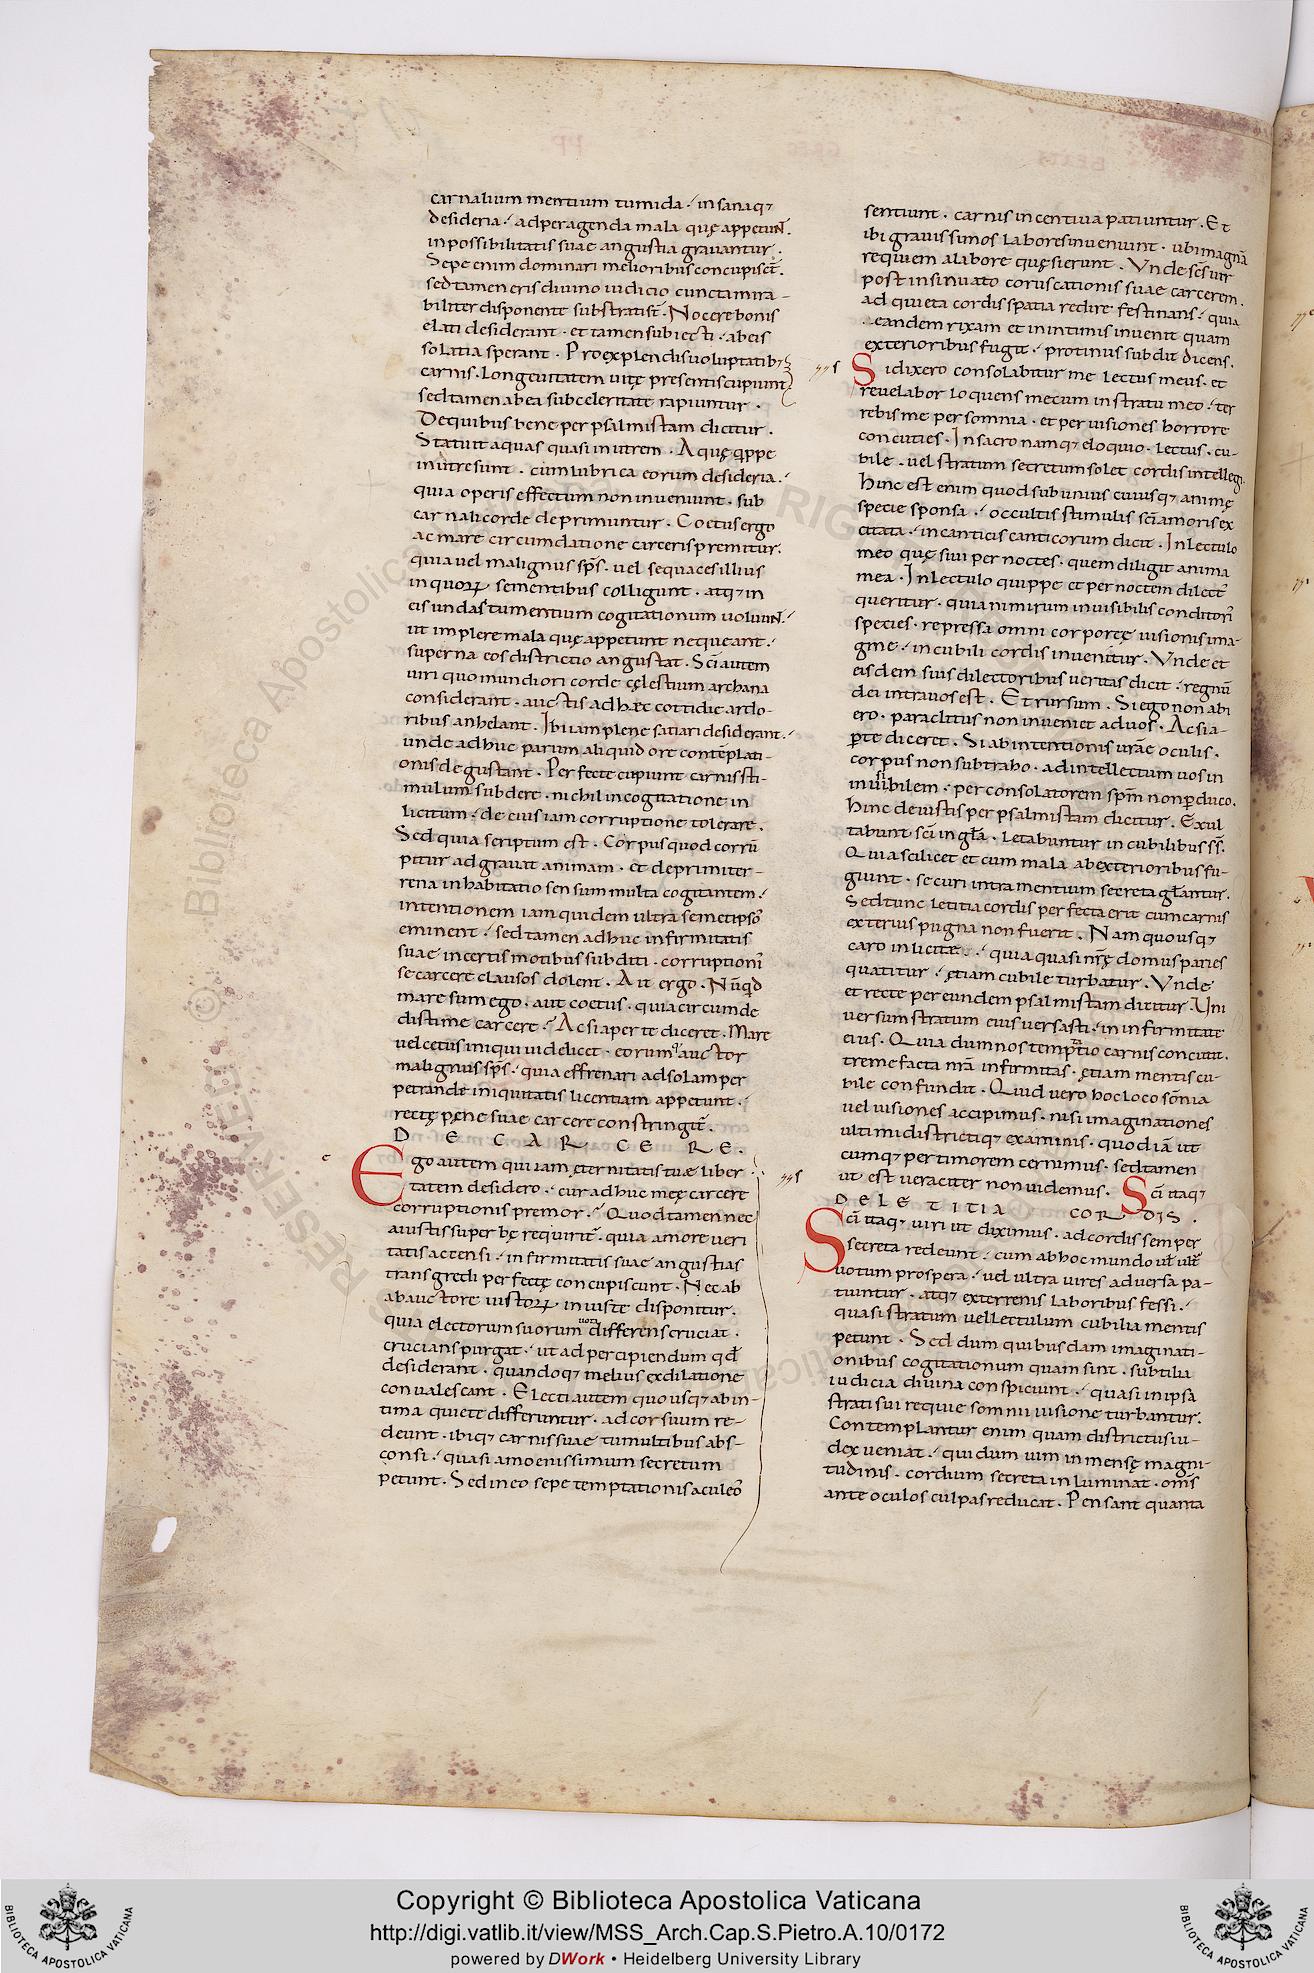 carnalium mentium tumida ⸵ insanaq;
desideria ⸵ ad peragenda mala quę appetunt̄.
inpossibilitatis suae angustia gravantur.
Sepe enim dominari melioribus concupisct̄.
sed tamen eris divino iudicio cuncta mira-
biliter disponente substratist̄. Nocere bonis
elati desiderant. et tamen subiecti ⸵ ab eis
solatia sperant. Pro explendis uoluptatib;
carnis. longeuitatem uitę presentis cupiunt.
sed tamen ab ea sub celeritate rapiuntur.
De quibus bene per psalmistam dicitur.
Statuit aquas quasi in utrem. Aquę q̄ppe
in utre sunt. cum lubrica eorum desideria ⸵
quia operis effectum non inveniunt. sub
carnali corde deprimuntur. Coetus ergo
ac mare circumdatione carceris premitur.
quia uel malignus sp̄s. uel sequaces illius
in quoꝝ se mentibus colligunt. atq; in
eis undas tumentium cogitationum uoluunt̄ ⸵
ut implere mala quę appetunt nequeant ⸵
superna eos districtio angustat. Sc̄i autem
uiri quo mundiori corde cęlestium archana
considerant. auctis ad haec cottidie ardo-
ribus anhelant. Ibi iam plene satiari desiderant ⸵
unde adhuc parum aliquid ore contēplati-
onis degustant. Perfecte cupiunt carnis sti-
mulum subdere. nichil in cogitatione in
licitum ⸵ de eius iam corruptione tolerare.
Sed quia scriptum est. Corpus quod corrū
pitur adgravat animam. et deprimit ter-
rena inhabitatio sensum multa cogitantem ⸵
intentionem iam quidem ultra semetipsos
eminent ⸵ sed tamen adhuc infirmitatis
suae incertis motibus subditi. corruptionis
se carcere clausos dolent. Ait ergo. Nūqd̄
mare sum ego. aut coetus. quia circumde
disti me carcere ⸵ Ac si aperte diceret. Mare
uel cetus iniqui uidelicet. eorumq; auctor
malignus sp̄s ⸵ quia effrenari ad solam per
petrande iniquitatis licentiam appetunt ⸵
rectę pęne suae carcere constringit̄.
DE CARCERE.
Ego autem qui iam ęternitatis tuę liber
tatem desidero ⸵ cur adhuc meę carcere
corruptionis premor ⸵ Quod tamen nec
a iustis superbę requirit̄. quia amore veri
tatis accensi ⸵ infirmitatis suae angustias
transgredi perfectę concupiscunt. Nec ab
ab auctore iustoꝝ iniuste disponitur.
quia electorum suorum uota differens cruciat.
crucians purgat ⸵ ut ad percipiendum qd̄
desiderant. quandoq; melius ex dilatione
convalescant. Electi autem quousq; ab in-
tima quiete differuntur. ad cor suum re-
deunt. ibiq; carnis suae tumultibus abs-
consi ⸵ quasi amoenissimum secretum
petunt. Sed in eo sepe temptationis aculeos
sentiunt. carnis incentiva patiuntur. Et
ibi gravissimos labores inveniunt. ubi magnā
requiem a labore quęsierunt. Unde sc̄s uir
post insinuato coruscationis suae carcerem.
ad quieta cordis spatia redire festinans ⸵ quia
eandem rixam et in intimis invenit quam
exterioribus fugit ⸵ protinus subdit dicens.
Si dixero consolabitur me lectus meus. et
revelabor loquens mecum in stratu meo ⸵ ter
rebis me per somnia. et per uisiones horrore
concuties. In sacro namq; eloquio. lectus. cu-
bile. uel stratum secretum solet cordis intellegi.
Hinc est enim quod sub unius cuiusq; animę
specie sponsa ⸵ occultis stimulis sc̄i amoris ex
citata ⸵ in canticis canticorum dicit. In lectulo
meo quę siui per noctes. quem diligit anima
mea. In lectulo quippe et per noctem dilect'
queritur. quia nimirum inuisibilis conditoris
species. repressa omni corporeę uisionis ima-
gine ⸵ in cubili cordis invenitur. Unde et
eisdem suis dilectoribus ueritas dicit ⸵ regnū
dei intra uos est. Et rursum. Si ego non abi
ero. paraclitus non inveniet ad uos. Ac si a-
perte diceret. Si ab intentionis ur̄ae oculis.
corpus non subtraho. ad intellectum uos in
invisibilem ⸵ per consolatorem sp̄m non perduco.
Hinc de iustis per psalmistam dicitur. Exul
tabunt sc̄i in gl̄a. letabuntur in cubilibus ss̄.
Quia scilicet et cum mala ab exterioribus fu-
giunt. securi intra mentium secreta gl̄antur.
Sed tunc letitia cordis perfecta erit cum carnis
exterius pugna non fuerit. Nam quousq;
caro inlicitae ⸵ quia quasi nr̄ę domus paries
quatitur ⸵ ętiam cubile turbatur. Unde
et recte per eundem psalmistam dicitur. Uni
versum stratum eius versasti ⸵ in infirmitate
eius. Quia dum nos temptatio carnis concutit.
tremefacta nr̄a infirmitas. ętiam mentis cu-
bile confundit. Quid vero hoc loco somnia
uel visiones accipimus. nisi imaginationes
ultimi districtiq; examinis. quod iā ut
cumq; per timorem cernimus. sed tamen
ut est ueraciter non videmus. Sc̄i itaq;
DE LETITIA CORDIS.
Sc̄i itaq; uiri ut diximus. ad cordis semper
secreta redeunt ⸵ cum ab hoc mundo ul̄ ult̄
uotum prospera ⸵ uel ultra uires adversa pa-
tiuntur. atq; exterrenis laboribus fessi ⸵
quasi stratum uel lectulum cubilia mentis
petunt. Sed dum quibusdam imaginati-
onibus cogitationum quam sint. subtilia
iudicia divina conspiciunt ⸵ quasi in ipsa
strati sui requie somnii uisione turbantur.
Contemplantur enim quam districtus iu-
dex veniat ⸵ qui dum uim inmensę magni-
tudinis. cordium secreta inluminat. om̄s
ante oculos culpas reducat. Pensant quanta
Copyright © Biblioteca Apostolica Vaticana
http://digi.vatlib.it/view/MSS_Arch.Cap.S.Pietro.A.10/0172
powered by DWork • Heidelberg University Library